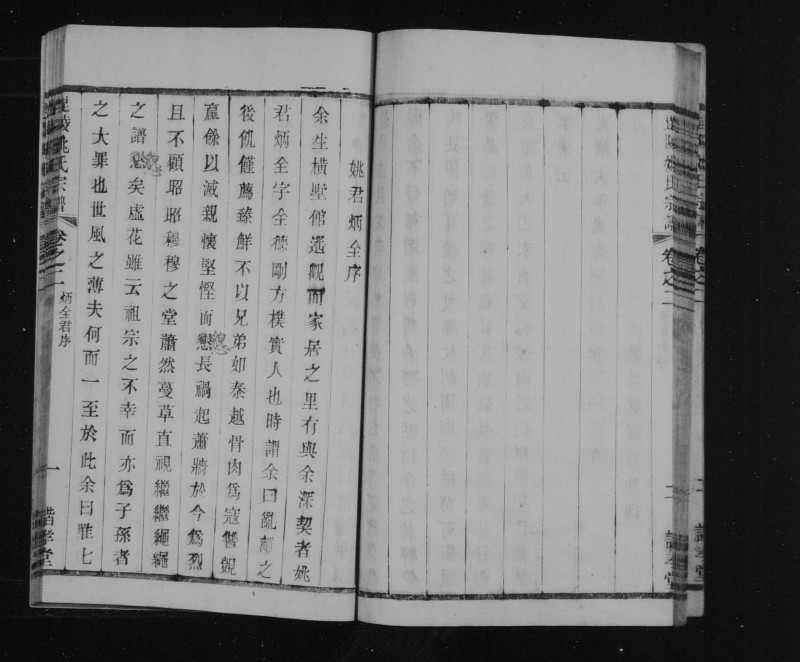 姚君炳全序
余生橫墅館遙觀而家居之里有與余深契者姚
君炳全字全德剛方樸實人也時謂余曰亂離之
後飢饉薦臻鮮不以兄弟如秦越骨肉爲寇讐覬
以滅親懷堅慳而愆長禍起蕭牆於今爲烈
且不顧昭昭穆穆之堂蕭然蔓草直視繼繼繩繩
之譜愆矣虛花雖云祖宗之不幸而亦爲子孫者
之大罪也世風之薄夫何而一至於此余曰唯七
毘陵姚氏宗譜
卷之二
炳全君序
一
毘陵姚氏宗譜
卷之二